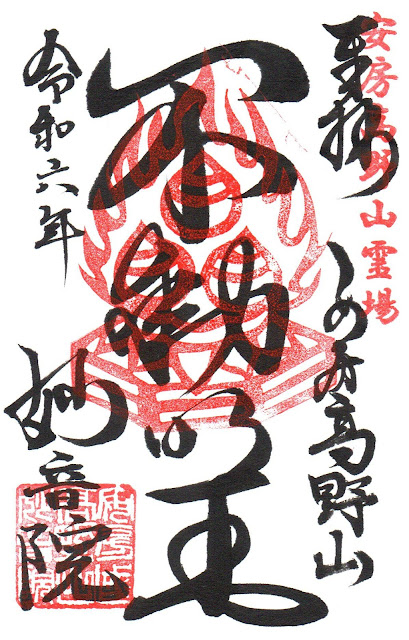 安房高野山霊場
奉拝
高野山
不動明王
令和六年
妙音院